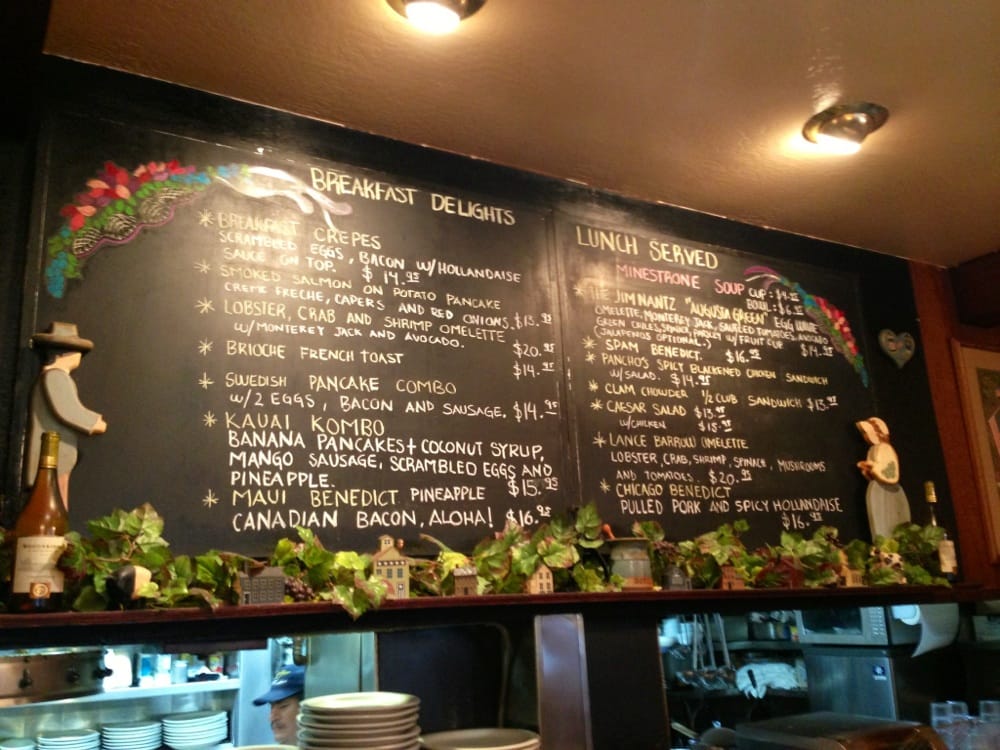 BREAKFAST DELIGHTS
* BREAKFAST CREPES
SCRAMBLED EGGS, BACON W/HOLLANDAISE
SAUCE ON TOP. $14.95
* SMOKED SALMON ON POTATO PANCAKE
CREME FRECHE, CAPERS AND RED ONIONS. $15.95
* LOBSTER, CRAB AND SHRIMP OMELETTE
W/MONTEREY JACK AND AVOCADO. $20.95
* BRIOCHE FRENCH TOAST $14.95
* SWEDISH PANCAKE COMBO
W/2 EGGS, BACON AND SAUSAGE. $14.95
* KAUAI KOMBO
BANANA PANCAKES + COCONUT SYRUP,
MANGO SAUSAGE, SCRAMBLED EGGS AND
PINEAPPLE. $15.95
* MAUI BENEDICT PINEAPPLE
CANADIAN BACON, ALOHA! $16.95
LUNCH SERVED
MINESTRONE SOUP CUP: $4.25
BOWL: $6.25
* THE JIM NANTZ "AUGUSTA GREEN" EGG WHITE
OMELETTE, MONTEREY JACK, SAUTEED TOMATOES, AVOCADO
GREEN CHILES, SPINACH, PARSLEY W/FRUIT CUP
(JALAPENOS OPTIONAL.) $14.95
* SPAM BENEDICT. $16.95
* PANCHO'S SPICY BLACKENED CHICKEN SANDWICH
W/SALAD. $14.95
* CLAM CHOWDER 1/2 CLUB SANDWICH $13.95
* CAESAR SALAD $13.95
W/CHICKEN $15.95
* LANCE BARROW OMELETTE
LOBSTER, CRAB, SHRIMP, SPINACH, MUSHROOMS
AND TOMATOES. $20.95
* CHICAGO BENEDICT
PULLED PORK AND SPICY HOLLANDAISE
$16.95